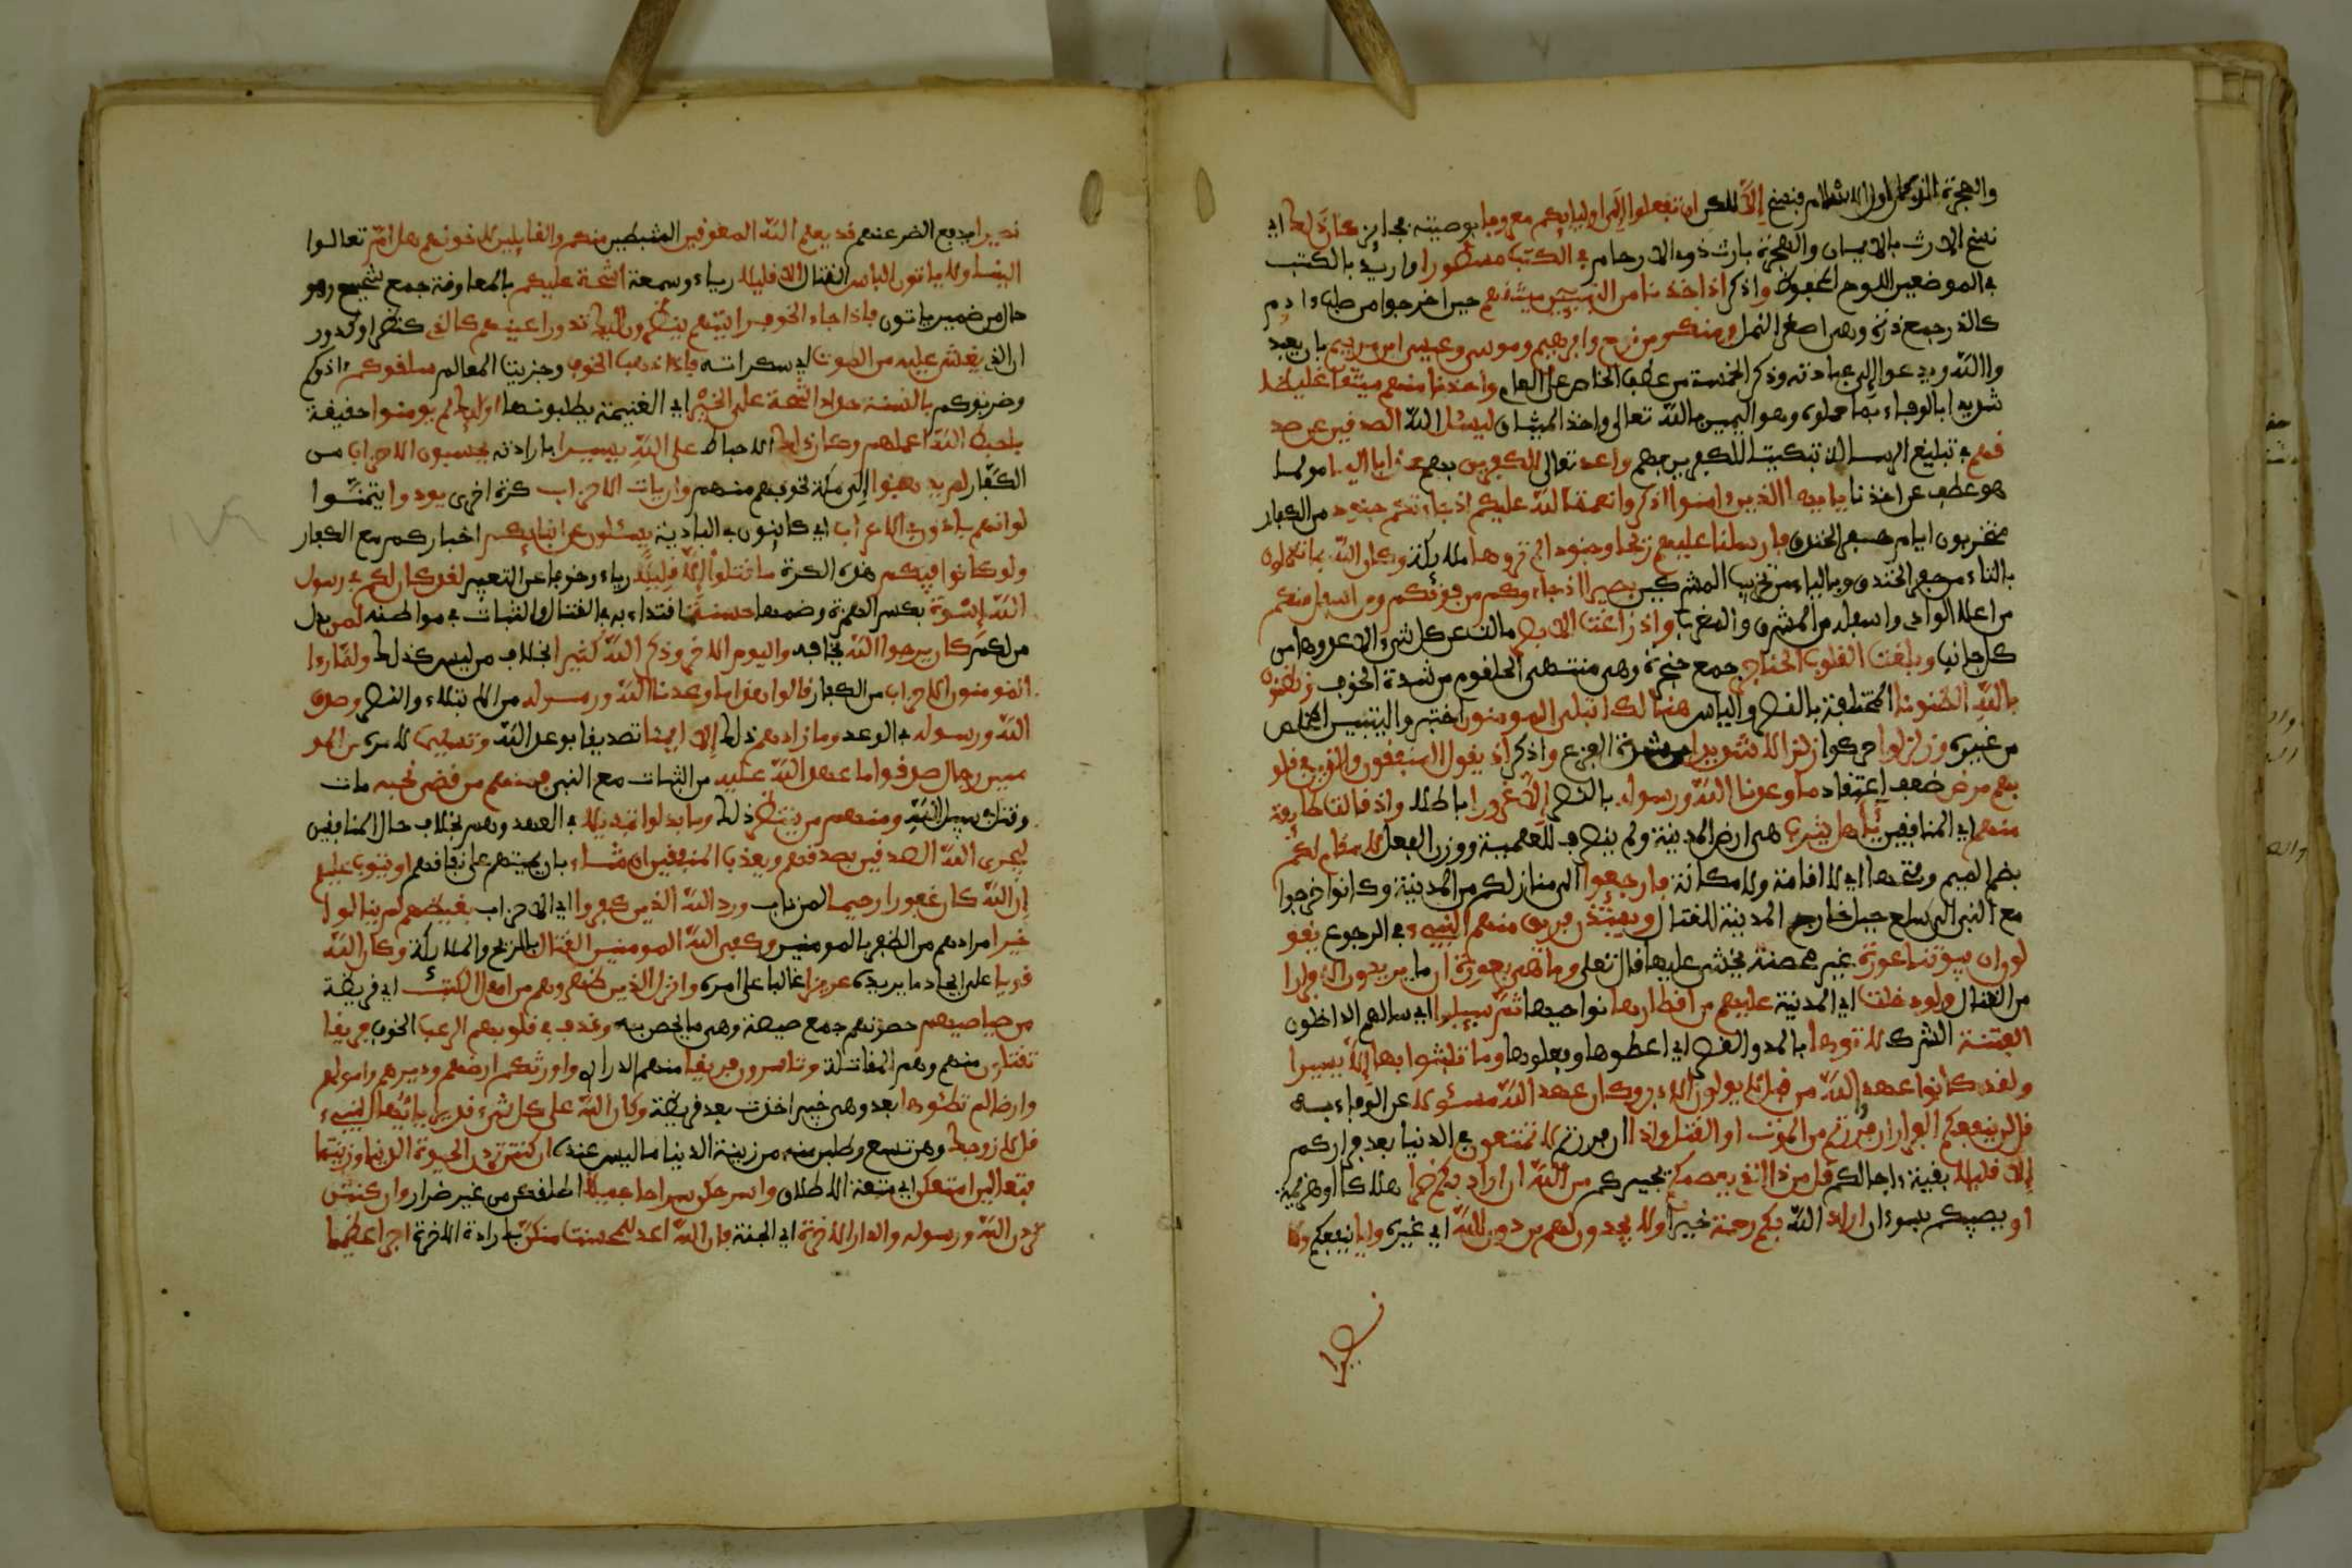 والهجرة الذي كان اول الاسلام فنسخ إلّا لكن ان تفعلوا إلى اوليايكم معروفا بوصية فجايز كان ذلك اي
نسخ الارث بالايمان والهجرة بارث ذوي الارحام في الكتب مسطورا واريد بالكتب
في الموضعين اللوح المحفوظ واذكر اذ اخذنا من النبيين ميثقهم حين اخرجوا من صلب ءادم
كالذر جمع ذرة وهي اصغر النمل ومنك ومن نوح وابرهيم وموسى وعيسى ابن مريم بان يعبد
واالله ويدعوا إلى عبادته وذكر الخمسة من عطف الخاص على العام واخذنا منهم ميثقا غليظا
شديدا بالوفاء بما حملوه وهو اليمين بالله تعالى واخذ الميثاق ليسئل الله الصدقين عن صد
قهم في تبليغ الرسالة تبكيتا للكفرين بهم واعد تعالى للكفرين بهم عذابا اليما مولما
هو عطف على اخذنا يايها الذين ءامنوا اذكروا نعمة الله عليكم اذ جاءتكم جنود من الكفار
متحزبون ايام حفر الخندق فارسلنا عليهم ريحا وجنودا لم تروها ملايكة وكان الله بما تعملون
بالتاء من حفر الخندق وبالياء من تحزيب المشركين بصيرا اذ جاءوكم من فوقكم ومن اسفل منكم
من اعلا الوادي واسفله من المشرق والمغرب واذ زاغت الابصر مالت عن كل شيء الا عدوها من
كل جانب وبلغت القلوب الحناجر جمع حنجرة وهي منتهى الحلقوم من شدة الخوف وتظنون
بالله الظنونا المختلفة بالنصر والياس هنالك ابتلى المومنون اختبروا ليتبين المخلص
من غيره وزلزلوا حركوا زلزالا شديدا من شدة الفزع واذكر اذ يقول المنفقون والذين في قلو
بهم مرض ضعف اعتقاد ما وعدنا الله ورسوله بالنصر إلّا غرورا باطلا واذ قالت طايفة
منهم اي المنافقين يأهل يثرب هي ارض المدينة ولم ينصرف للعلمية ووزن الفعل لا مقام لكم
بضم الميم وفتحها اي لا اقامة ولا مكانة فارجعوا الى منازلكم من المدينة وكانوا خرجوا
مع النبي الى سلع جبل خارج المدينة للقتال ويستئذن فريق منهم النبيء في الرجوع يقو
لون ان بيوتنا عورة غير محصنة نخشى عليها قال تعلى وما هي بعورة ان ما يريدون إلا فرارا
من القتال ولو دخلت اي المدينة عليهم من اقطارها نواحيها ثم سيلوا اي سالهم الداخلون
الفتنة الشرك لاتوها بالمد والقصر اي اعطوها وفعلوها وما تلبثوا بها إلا يسيرا
ولقد كانوا عهدوا الله من قبل لا يولون الادبر وكان عهد الله مسئولا عن الوفاء به
قل لن ينفعكم الفرار ان فررتم من الموت او القتل واذا ان فررتم لا تمتعون في الدنيا بعد فراركم
إلا قليلا بقية ءاجالكم قل من ذا الذي يعصمكم يجيركم من الله ان اراد بكم ضرا هلاكا او هزيمة
او يصيبكم بسوء ان اراد الله بكم رحمة خيرا ولا يجدون لهم من دون الله اي غيره وليا ينفعهم ولا
نصيرا
نصيرا يدفع الضر عنهم قد يعلم الله المعوقين المثبطين منكم والقايلين لاخوانهم هلم تعالوا
الينا ولا ياتون الباس القتال إلا قليلا رياء وسمعة اشحة عليكم بالمعاونة جمع شحيح وهو
حال من ضمير ياتون فاذا جاء الخوف رايتهم ينظرون اليك تدور اعينهم كالذي كنظر او كدور
ان الذي يغشى عليه من الموت اي سكراته فاذا ذهب الخوف وحيزت الغنايم سلقوكم ءاذوكم
وضربوكم بالسنة حداد اشحة على الخير اي الغنيمة يطلبونها اوليك لم يومنوا حقيقة
فاحبط الله اعملهم وكان ذلك الاحباط على الله يسيرا بارادته يحسبون الاحزاب من
الكفار لم يذهبوا إلى مكة لخوفهم منهم وان يات الاحزاب كرة اخرى يودوا يتمنوا
لو انهم بادون في الاعراب اي كاينون في البادية يسئلون عن انبايكم اخباركم مع الكفار
ولو كانوا فيكم هذه الكرة ما قتلوا إلّا قليلا رياء وخوفا من التعيير لقد كان لكم في رسول
الله إسوة بكسر الهمزة وضمها حسنة اقتداء به في القتال والثبات في مواطنه لمن بدل
من لكم كان يرجوا الله يخافه واليوم الاخر وذكر الله كثيرا بخلاف من ليس كذلك ولما رءا
المومنون الاحزاب من الكفار قالوا هذا ما وعدنا الله ورسوله من الابتلاء والنصر وصدق
الله ورسوله في الوعد وما زادهم ذلك إلا ايمنا تصديقا بوعد الله وتسليما لامره من المو
منين رجال صدقوا ما عهدوا الله عليه من الثبات مع النبي فمنهم من قضى نحبه مات
وقتل في سبيل الله ومنهم من ينتظر ذلك وما بدلوا تبديلا في العهد وهم بخلاف حال المنافقين
ليجزي الله الصدقين بصدقهم ويعذب المنفقين ان شاء بان يميتهم على نفاقهم او يتوب عليهم
إن الله كان غفورا رحيما لمن تاب ورد الله الذين كفروا اي الاحزاب بغيظهم لم ينالوا
خيرا مرادهم من الظفر بالمومنين وكفى الله المومنين القتال بالريح والملايكة وكان الله
قويا على ايجاد ما يريده عزيزا غالبا على امره وانزل الذين ظهروهم من اهل الكتب اي قريظة
من صياصيهم حصونهم جمع صيصة وهي ما يتحصن به وقذف في قلوبهم الرعب الخوف فريقا
تقتلون منهم وهم المقاتلة وتاسرون فريقا منهم الذراري واورثكم ارضهم وديرهم واموالهم
وارضا لم تطئوها بعد وهي خيبر اخذت بعد قريظة وكان الله على كل شيء قديرا يايها النبيء
قل لازوجك وهن تسع وطلبن منه من زينة الدنيا ما ليس عنده ان كنتن تردن الحيوة الدنيا وزينتها
فتعالين امتعكن اي متعة الاطلاق واسرحكن سراحا جميلا اطلقكن من غير ضرار وان كنتن
تردن الله ورسوله والدار الاخرة اي الجنة فان الله اعد للمحسنت منكن بارادة الاخرة اجرا عظيما